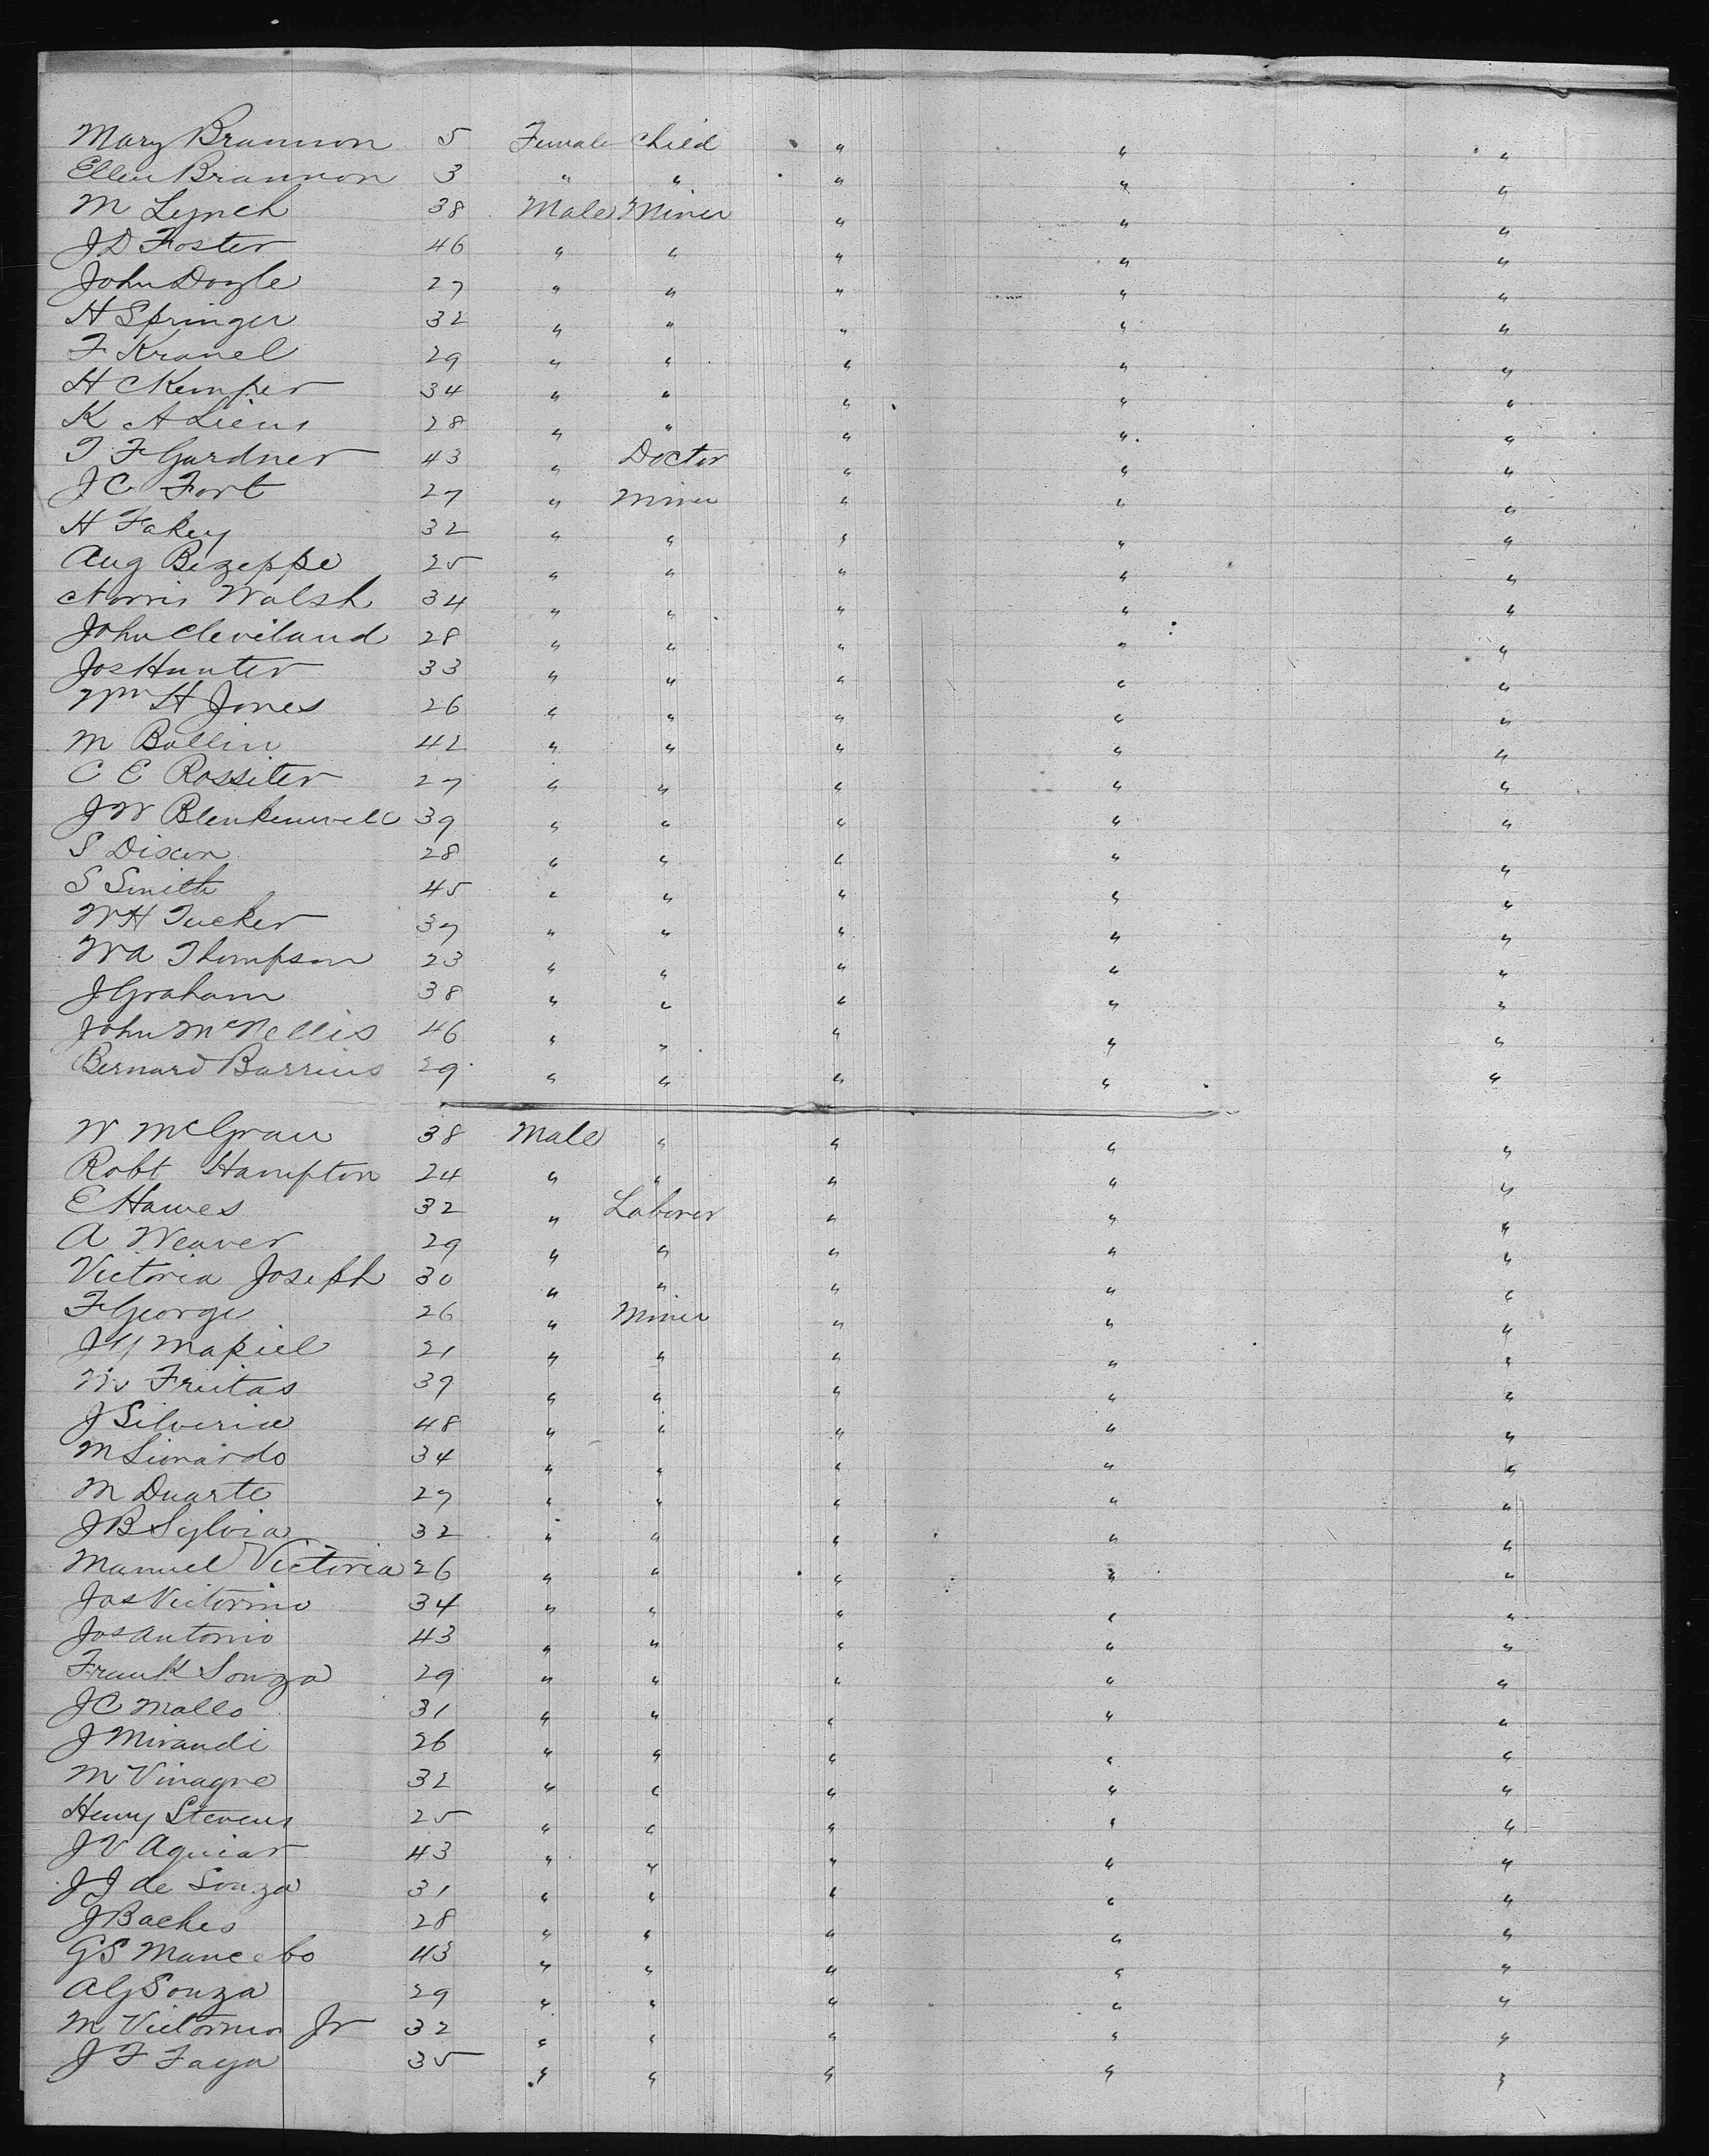 Mary Brannon 5 Female Child " " "
Ellen Brannon 3 " " " " "
M Lynch 38 Male Miner " " "
J D Foster 46 " " " " "
John Doyle 27 " " " " "
H Springer 32 " " " " "
F Kranel 29 " " " " "
H C Kemper 34 " " " " "
K A Liens 28 " " " " "
T F Gardner 43 " Doctor " " "
J C Fort 27 " Miner " " "
H Fakey 32 " " " " "
Aug Bezeppe 25 " " " " "
Norris Walsh 34 " " " " "
John Cleveland 28 " " " " "
Jos Hunter 33 " " " " "
Wm H Jones 26 " " " " "
M Bollin 42 " " " " "
C E Rossiter 27 " " " " "
J W 39 " " " " "
S Dixon 28 " " " " "
S Smith 45 " " " " "
W H Tucker 37 " " " " "
W A Thompson 23 " " " " "
J Graham 38 " " " " "
John McNellis 46 " " " " "
Bernard Barrius 29 " " " " "
W McGrau 38 Male " " " "
Robt Hampton 24 " " " " "
E Hawes 32 " Laborer " " "
A Weaver 29 " " " " "
Victoria Joseph 30 " " " " "
F George 26 " Miner " " "
J Y Mapiel 21 " " " " "
Freitas 39 " " " " "
J Silveria 48 " " " " "
M Lionardo 34 " " " " "
M Duarte 27 " " " " "
J B Sylvia 32 " " " " "
Manuel Victoria 26 " " " " "
Jos Victorino 34 " " " " "
Jos Antonio 43 " " " " "
Frank Souza 29 " " " " "
J C Mallo 31 " " " " "
J Mirandi 26 " " " " "
M Vinagre 32 " " " " "
Henry Stevens 25 " " " " "
J V Aguiar 43 " " " " "
J J de Souza 31 " " " " "
J Baches 28 " " " " "
G S Mancebo 43 " " " " "
A G Souza 29 " " " " "
M Victorino Jr 32 " " " " "
J F Faya 35 " " " " "